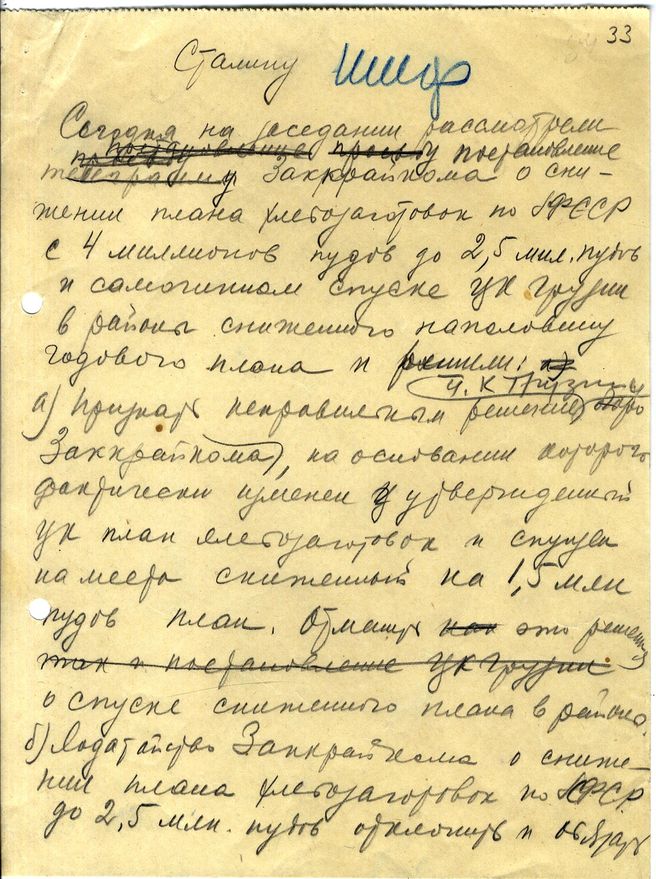 33
Сталину Шифр
Сегодня на заседании рассмотрели
постановление просьбу постановление
телеграмму Заккрайкома о сни-
жении плана хлебозаготовок по ЗСФСР
с 4 миллионов пудов до 2,5 мил. пудов
и самочинном спуске ЦК Грузии
в районы сниженного наполовину
годового плана и решили:
Ц.К Грузии и
а) Признать неправильным решение бюро
Заккрайкома, на основании которого
фактически изменен утвержденный
ЦК план хлебозаготовок и спущен
на места сниженный на 1,5 млн
пудов план. Отменить как это решение
так и постановление ЦК Грузии
о спуске сниженного плана в районы.
б) Ходатайство Заккрайкома о сниже-
нии плана хлебозаготовок по ЗСФСР
до 2,5 млн. пудов отклонить и обязать